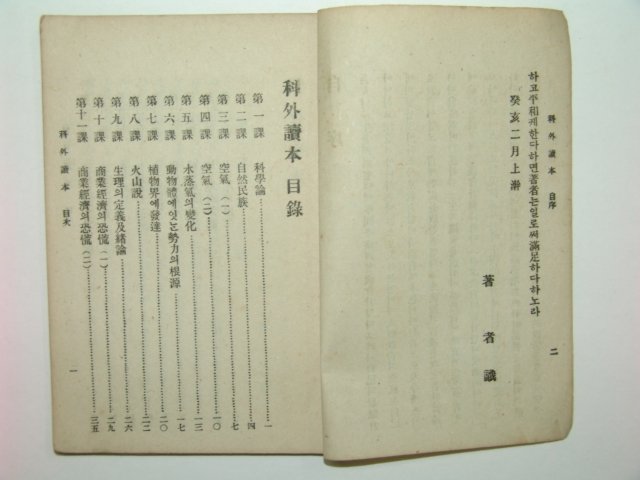 科外讀本 自序
하고平和케한다하면著者는일로써滿足하다하노라
癸亥二月上澣
著者識
二
科外讀本目錄
第一課 科學論 一
第二課 自然民族 四
第三課 空氣(一) 七
第四課 空氣(二) 一〇
第五課 水蒸氣의變化 一三
第六課 動物體에잇는勢力의根源 一七
第七課 植物界에發達 二〇
第八課 火山說 二二
第九課 生理의定義及緖論 二六
第十課 商業經濟의恐慌(一) 二九
第十一課 商業經濟의恐慌(二) 三五
科外讀本 目次
一